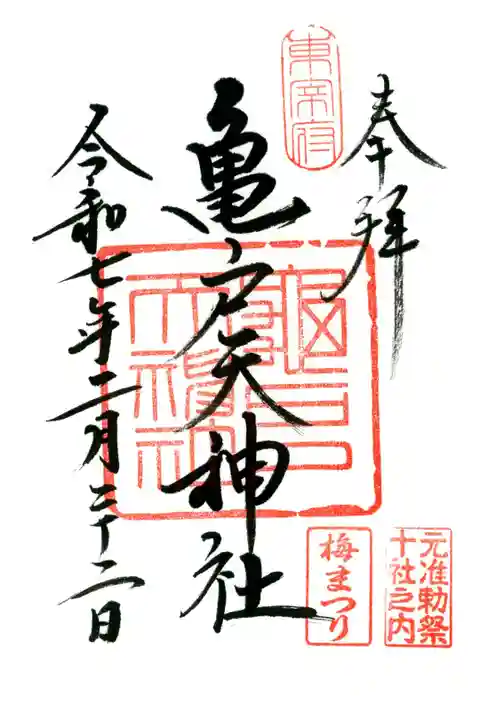 奉拝
東宰府
亀戸天神社
令和七年二月二十二日
梅まつり
元准勅祭
十社之内